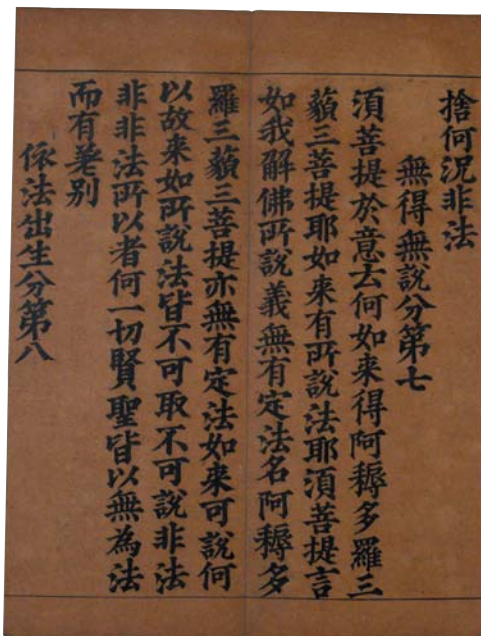 捨何況非法
無得無說分第七
湏菩提於意云何如来得阿耨多羅三
藐三菩提耶如来有所說法耶湏菩提言
如我解佛所說義無有定法名阿耨多
羅三藐三菩提亦無有定法如来可說何
以故来如所說法皆不可取不可說非法
非非法所以者何一切賢聖皆以無為法
而有差别
依法出生分第八